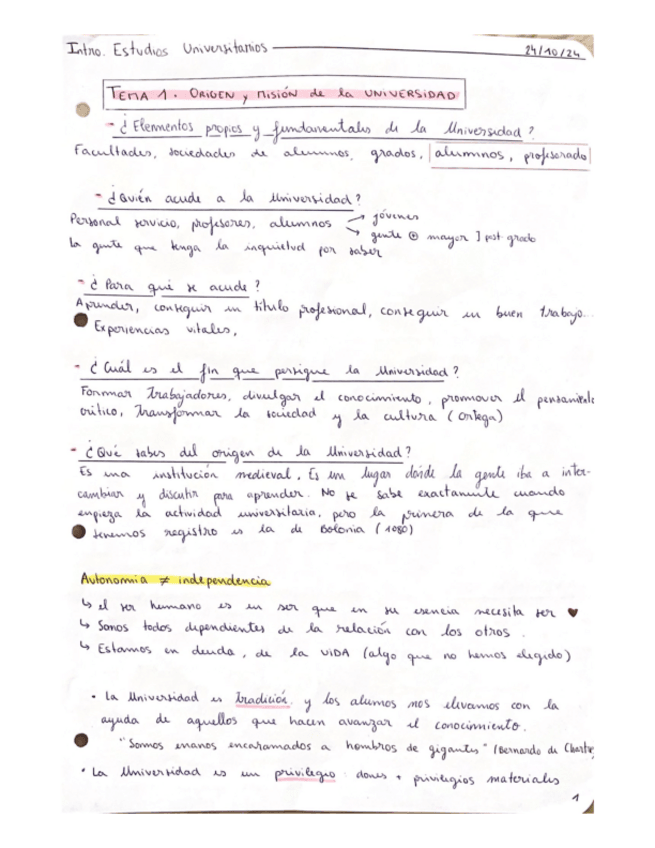 Intro. Estudios Universitarios
24/10/24
TEMA 1. ORIGEN y MISIÓN de la UNIVERSIDAD
- ¿Elementos propios y fundamentales de la Universidad?
Facultades, sociedades de alumnos, grados, alumnos, profesorado
- ¿Quién acude a la Universidad?
Personal servicio, profesores, alumnos → jóvenes
→ gente ⊕ mayor ] post grado
La gente que tenga la inquietud por saber
- ¿Para qué se acude?
Aprender, conseguir un título profesional, conseguir un buen trabajo...
Experiencias vitales,
- ¿Cuál es el fin que persigue la Universidad?
Formar Trabajadores, divulgar el conocimiento, promover el
crítico, Transformar la sociedad y la cultura (Ortega)
- ¿Qué sabes del origen de la Universidad?
Es una institución medieval. Es un lugar donde la gente iba a inter-
cambiar y discutir para aprender. No se sabe exactamente cuando
empieza la actividad universitaria, pero la primera de la que
tenemos registro es la de Bolonia (1080)
Autonomía ≠ independencia
↳ el ser humano es un ser que en su esencia necesita ser ♥
↳ Somos todos dependientes de la relación con los otros.
↳ Estamos en deuda, de la VIDA (algo que no hemos elegido)
• La Universidad es tradición y los alumos nos elevamos con la
ayuda de aquellos que hacen avanzar el conocimiento.
"Somos enanos encaramados a hombros de gigantes" (Bernardo de
• La Universidad es un privilegio: dones + privilegios materiales
1